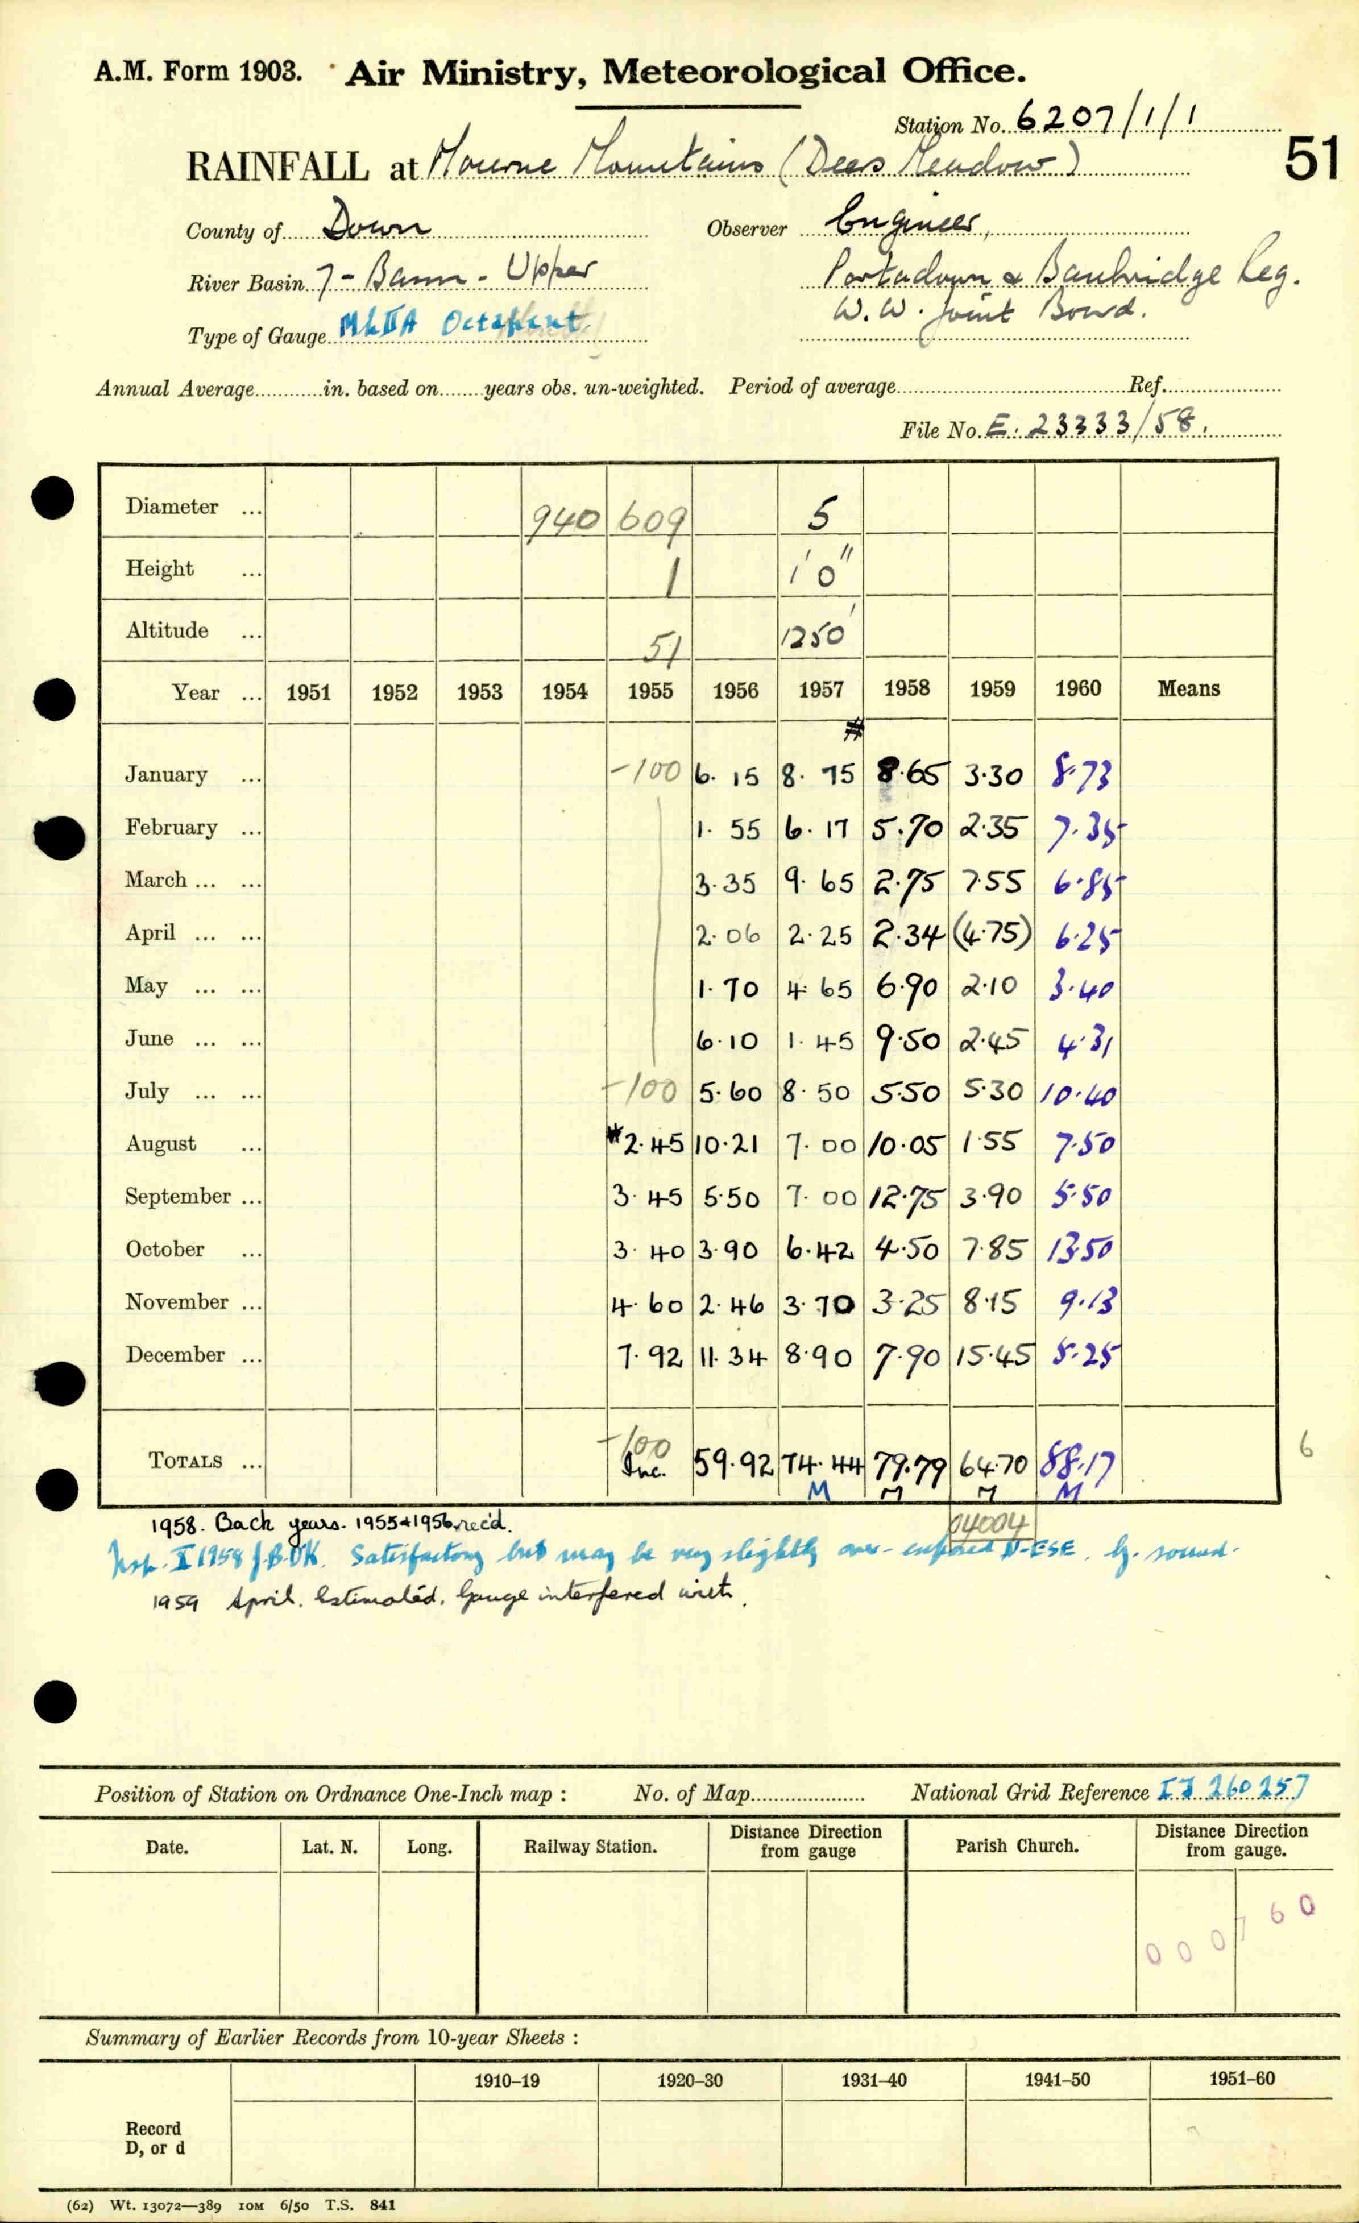 A.M. Form 1903. Air Ministry, Meteorological Office.
Station No. 6207/1/1
RAINFALL at Mourne Mountains (Deers Meadow)
51
County of Down
Observer Engineer,
River Basin 7 - Bann - Upper
Portadown & Banbridge Reg.
W.W. Joint Board.
Type of Gauge MkIIA Octapent
Annual Average in. based on years obs. un-weighted. Period of average Ref.
File No. E. 23333/58.
Diameter ... 940 609 5
Height ... 1 1' 0"
Altitude ... 51 1250'
Year ... 1951 1952 1953 1954 1955 1956 1957 1958 1959 1960 Means
#
January ... -100 6.15 8.75 8.65 3.30 8.73
February ... 1.55 6.17 5.70 2.35 7.35
March ... ... 3.35 9.65 2.75 7.55 6.85
April ... ... 2.06 2.25 2.34 (4.75) 6.25
May ... ... 1.70 4.65 6.90 2.10 3.40
June ... ... 6.10 1.45 9.50 2.45 4.31
July ... ... -100 5.60 8.50 5.50 5.30 10.40
August ... #2.45 10.21 7.00 10.05 1.55 7.50
September ... 3.45 5.50 7.00 12.75 3.90 5.50
October ... 3.40 3.90 6.42 4.50 7.85 13.50
November ... 4.60 2.46 3.70 3.25 8.15 9.13
December ... 7.92 11.34 8.90 7.90 15.45 5.25
-100
TOTALS ... Inc. 59.92 74.44 79.79 64.70 88.17 6
M M M M
04004
1958. Back years. 1955 & 1956 rec'd.
Insp. X 1958 J.B.OK. Satisfactory but may be very slightly over-exposed N-ESE. Lg. round.
1959 April. Estimated. Gauge interfered with.
Position of Station on Ordnance One-Inch map : No. of Map National Grid Reference IJ 260 257
Date. Lat. N. Long. Railway Station. Distance Direction from gauge Parish Church. Distance Direction from gauge.
000760
Summary of Earlier Records from 10-year Sheets :
1910–19 1920–30 1931–40 1941–50 1951–60
Record
D, or d
(62) Wt. 13072—389 10M 6/50 T.S. 841